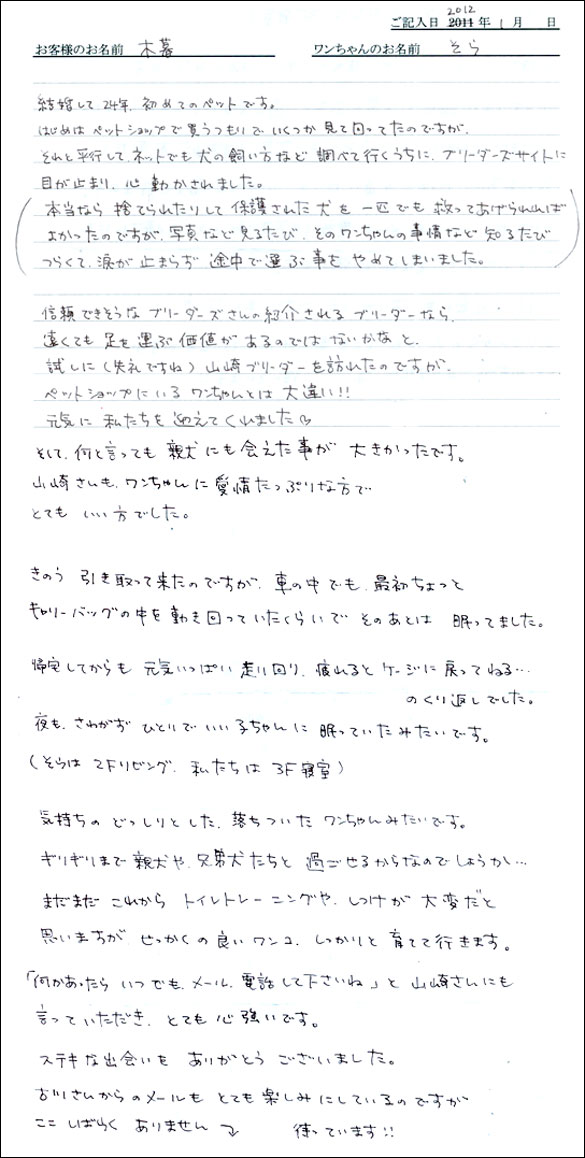 2012
ご記入日 2011年 1月 日
お客様のお名前 木暮 ワンちゃんのお名前 そら
結婚して24年、初めてのペットです。
はじめは ペットショップで買うつもりで いくつか 見て回ってたのですが、
それと平行して、ネットでも 犬の飼い方など 調べて行くうちに、ブリーダーズサイトに
目が止まり、心 動かされました。
(本当なら 捨てられたりして 保護された 犬を 一匹でも 救ってあげられれば
よかったのですが、写真など見るたび、そのワンちゃんの事情など 知るたび
つらくて、涙が 止まらず 途中で 選ぶ事を やめてしまいました。)
信頼できそうな ブリーダーズさんの紹介される ブリーダーなら、
遠くても 足を 運ぶ 価値が あるのでは ないかな と、
試しに(失礼ですね) 山崎ブリーダーを訪れたのですが、
ペットショップにいる ワンちゃんとは 大違い!!
元気に 私たちを 迎えて くれました♪
そして、何と言っても 親犬にも会えた事が 大きかったです。
山崎さんも、ワンちゃんに 愛情たっぷりな方で
とても いい方でした。
きのう 引き取って来たのですが、車の中でも、最初ちょっと
キャリーバッグの中を 動き回っていたくらいで そのあとは 眠ってました。
帰宅してからも 元気いっぱい 走り回り、疲れると ケージに戻ってねる…
のくり返しでした。
夜も、さわがず ひとりで いい子ちゃんに 眠っていたみたいです。
(そらは 2Fリビング、私たちは 3F寝室)
気持ちの どっしりとした、落ちついた ワンちゃんみたいです。
ギリギリまで 親犬や、兄弟犬たちと 過ごせるからなのでしょうか…
まだまだ これから トイレトレーニングや、しつけが 大変だと
思いますが せっかくの良いワンコ、しっかりと 育てて行きます。
「何かあったら いつでも、メール、電話して下さいね」と 山崎さんにも
言っていただき、とても 心強いです。
ステキな出会いを ありがとう ございました。
古川さんからのメールも とても楽しみにしているのですが
ここ しばらく ありません⤵ 待っています!!